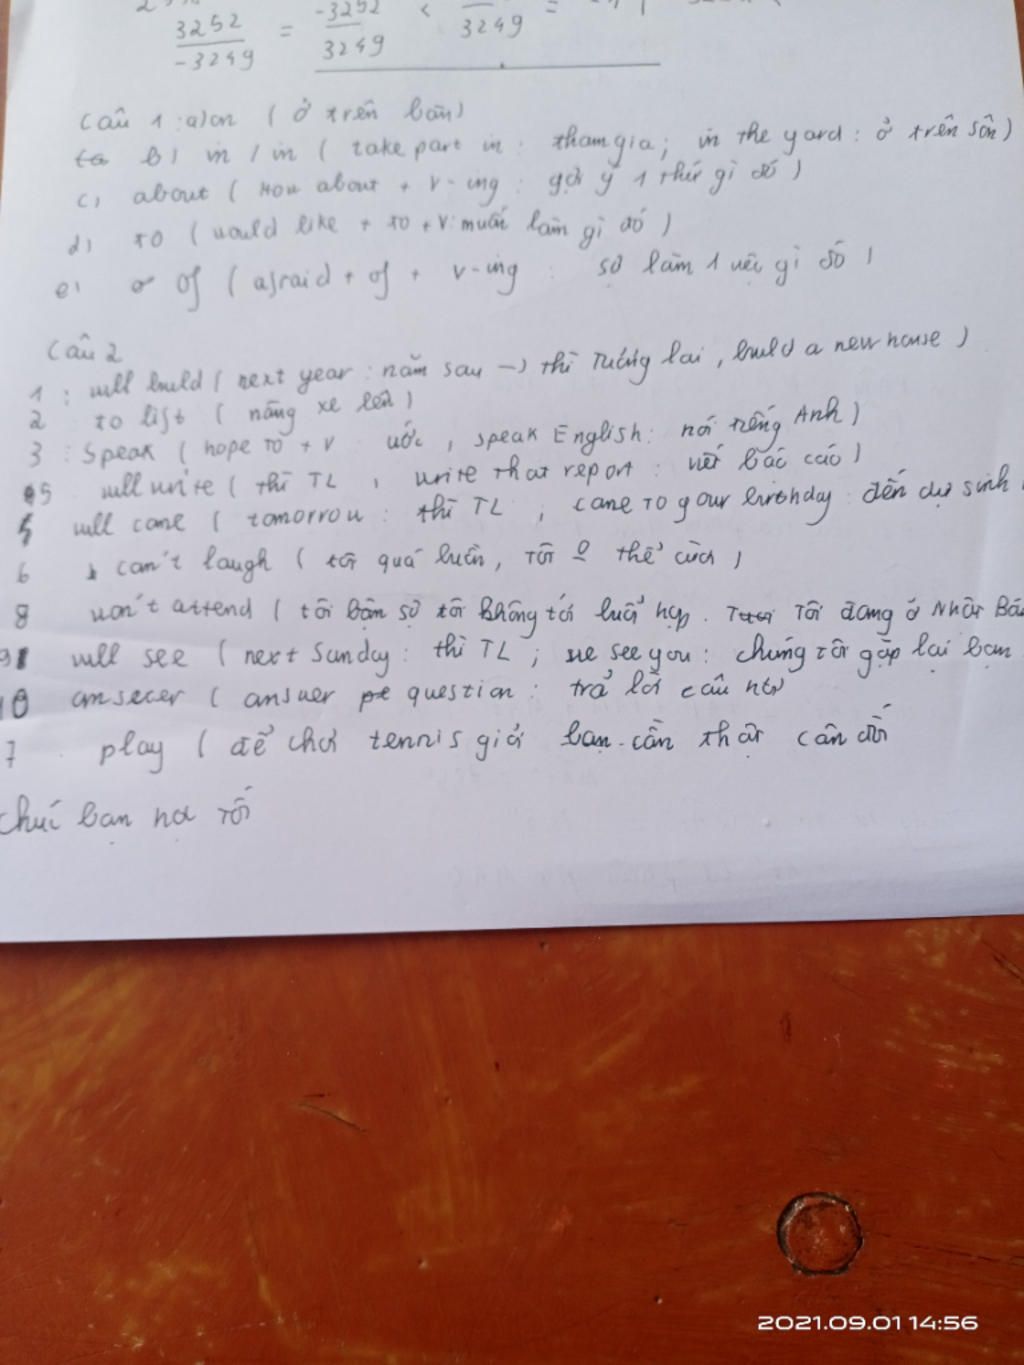 3252 / -3249 = -3252 / 3249 < / 3249 =
Câu 1 : a) on ( ở trên bàn )
b) in / in ( take part in : tham gia ; in the yard : ở trên sân )
c) about ( How about + V-ing : gợi ý 1 thứ gì đó )
d) to ( would like + to + V : muốn làm gì đó )
e) of ( afraid + of + V-ing : sợ làm 1 việc gì đó )
Câu 2
1 : will build ( next year : năm sau -> thì Tương lai , build a new house )
2 to lift ( nâng xe lên )
3 : Speak ( hope to + V ước , speak English : nói tiếng Anh )
5 will write ( thì TL , write that report : viết báo cáo )
4 will come ( tomorrow : thì TL ; come to your birthday : đến dự sinh
6 can't laugh ( tôi quá buồn , tôi 0 thể cười )
8 won't attend ( tôi bận sợ tôi không tới buổi họp . Tôi đang ở Nhật Bản
9 will see ( next Sunday : thì TL ; we see you : chúng tôi gặp lại bạn
10 answer ( answer question : trả lời câu hỏi
7 . play ( để chơi tennis giỏi bạn cần thật cân đối
Chúc bạn học tốt
2021.09.01 14:56